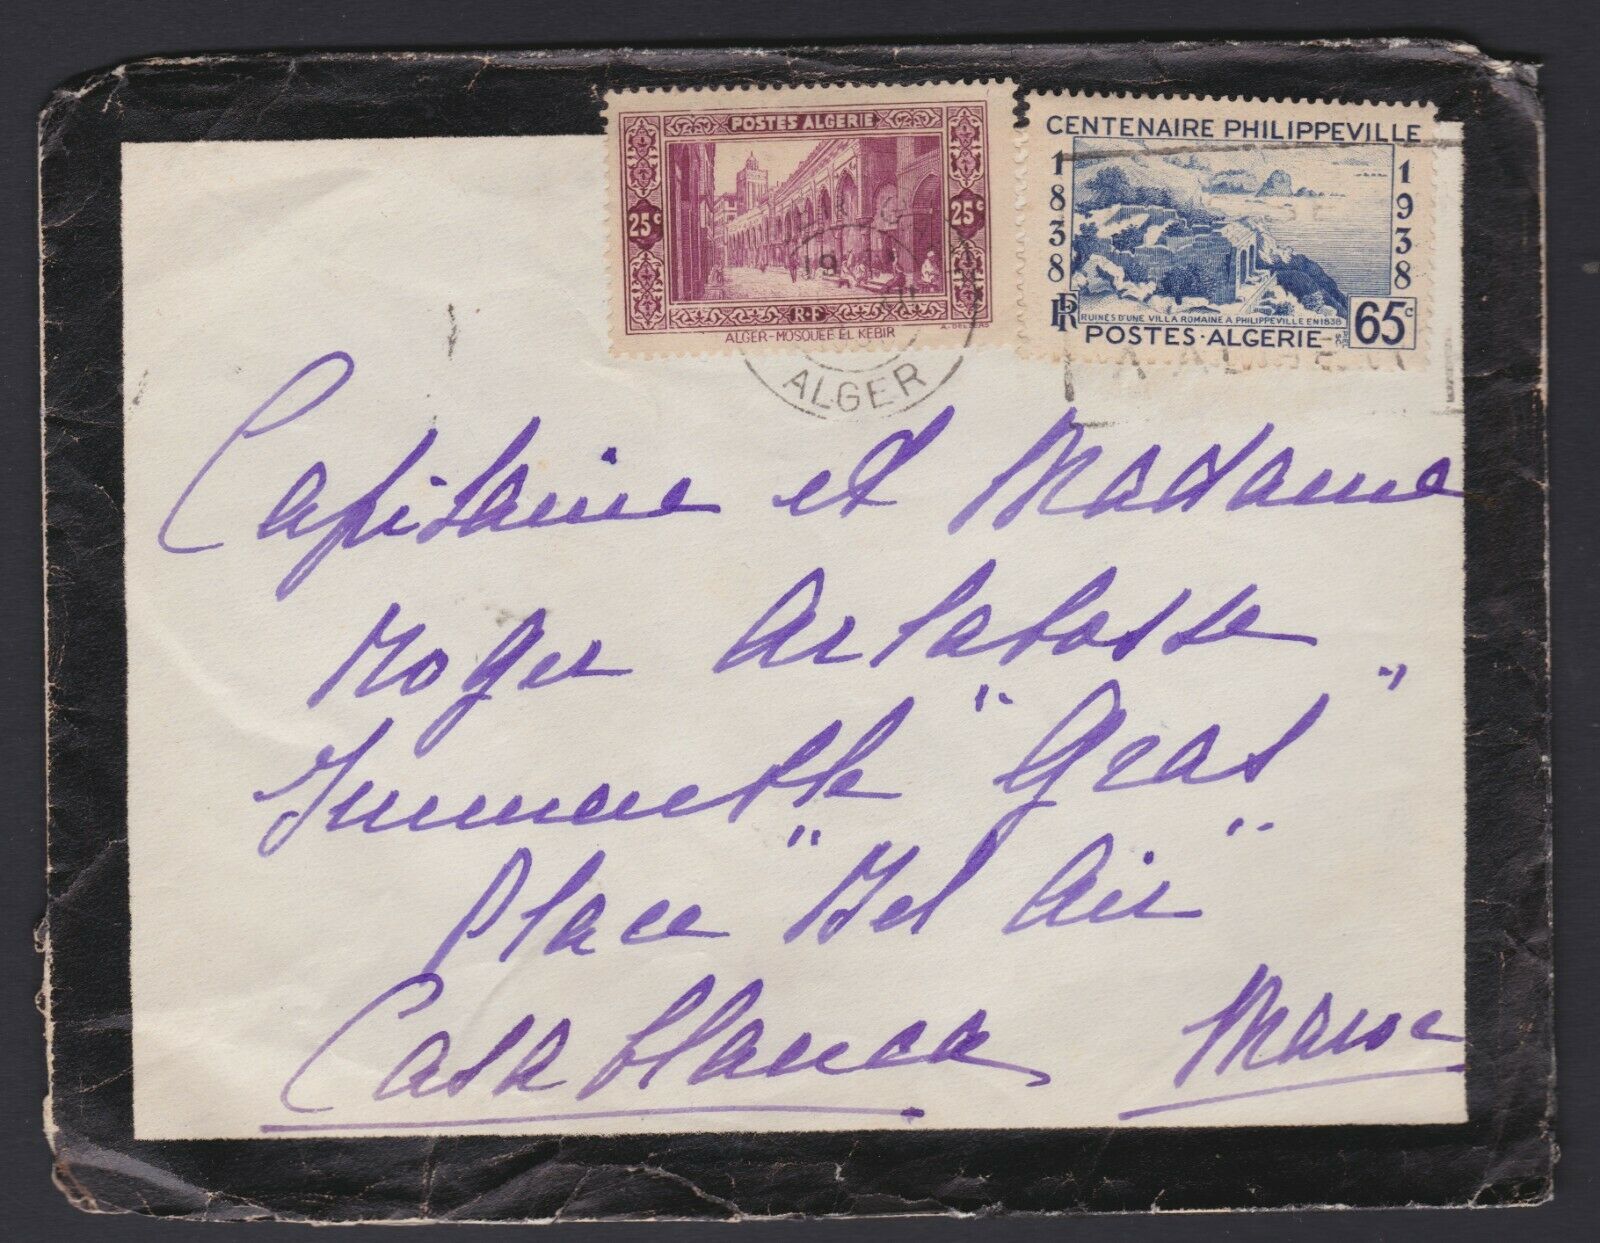 POSTES ALGERIE
25c 25c
RF
ALGER-MOSQUEE EL KEBIR
CENTENAIRE PHILIPPEVILLE
1838 1938
RF
RUINES D'UNE VILLA ROMAINE A PHILIPPEVILLE EN 1838
POSTES-ALGERIE 65c
19
ALGER
Capitaine et Madame
Roger Arlabosse
Immeuble "Gras"
Place "Bel Air"
Casablanca Maroc